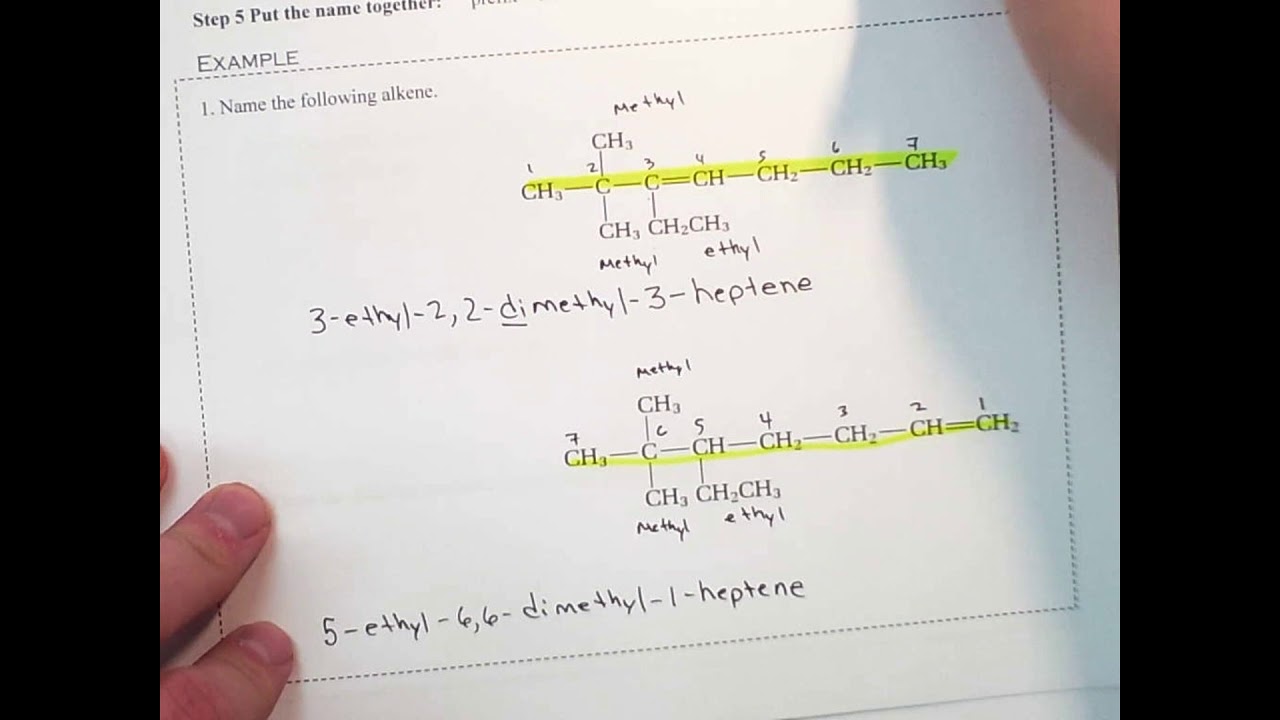 Step 5 Put the name together:
EXAMPLE
1. Name the following alkene.
Methyl
CH₃
1 2 3 4 5 6 7
CH₃—C—C=CH—CH₂—CH₂—CH₃
CH₃ CH₂CH₃
Methyl ethyl
3-ethyl-2,2-dimethyl-3-heptene
Methyl
CH₃
7 6 5 4 3 2 1
CH₃—C—CH—CH₂—CH₂—CH=CH₂
CH₃ CH₂CH₃
Methyl ethyl
5-ethyl-6,6-dimethyl-1-heptene